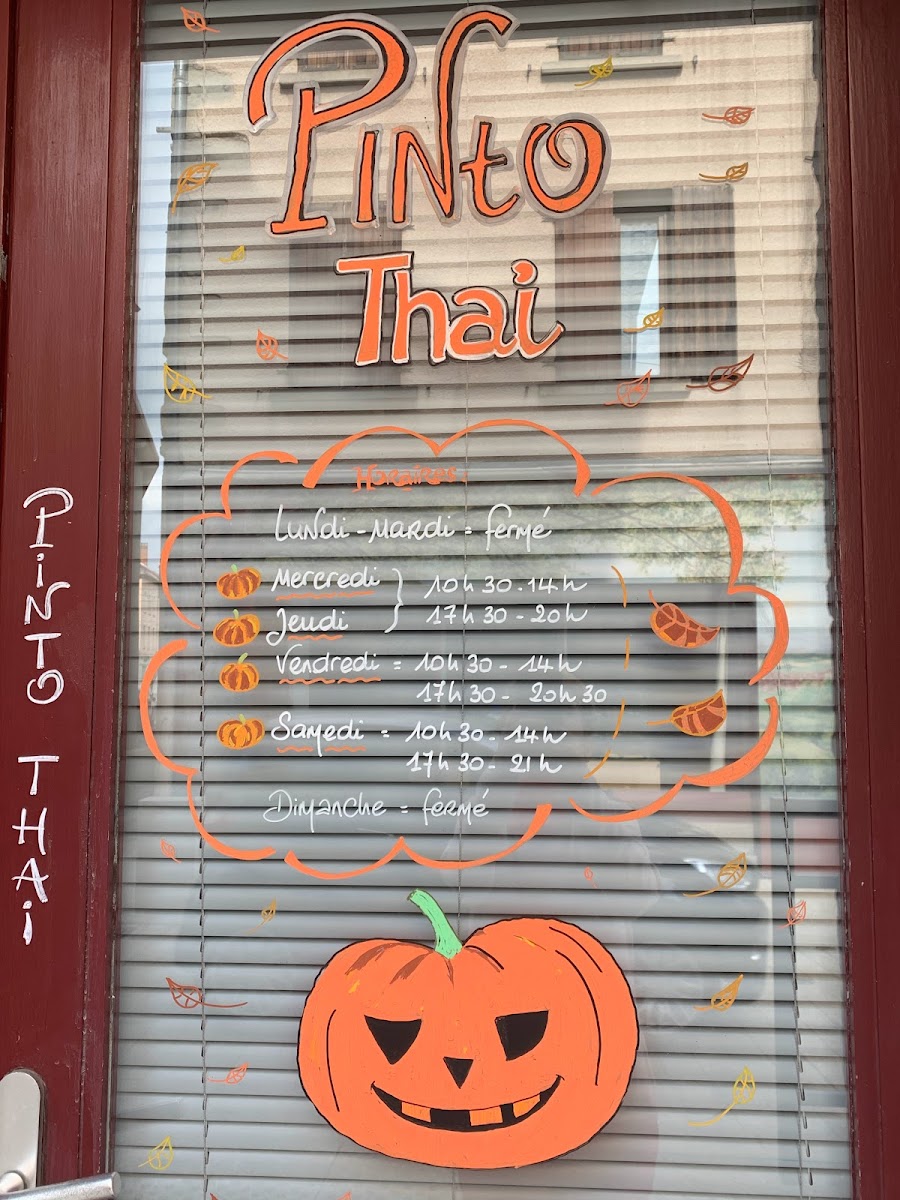 Pinto
Thai
Horaires
Lundi - Mardi = fermé
Mercredi } 10h30-14h
Jeudi 17h30-20h
Vendredi = 10h30-14h
17h30-20h30
Samedi = 10h30-14h
17h30-21h
Dimanche = fermé
PINTO THAI